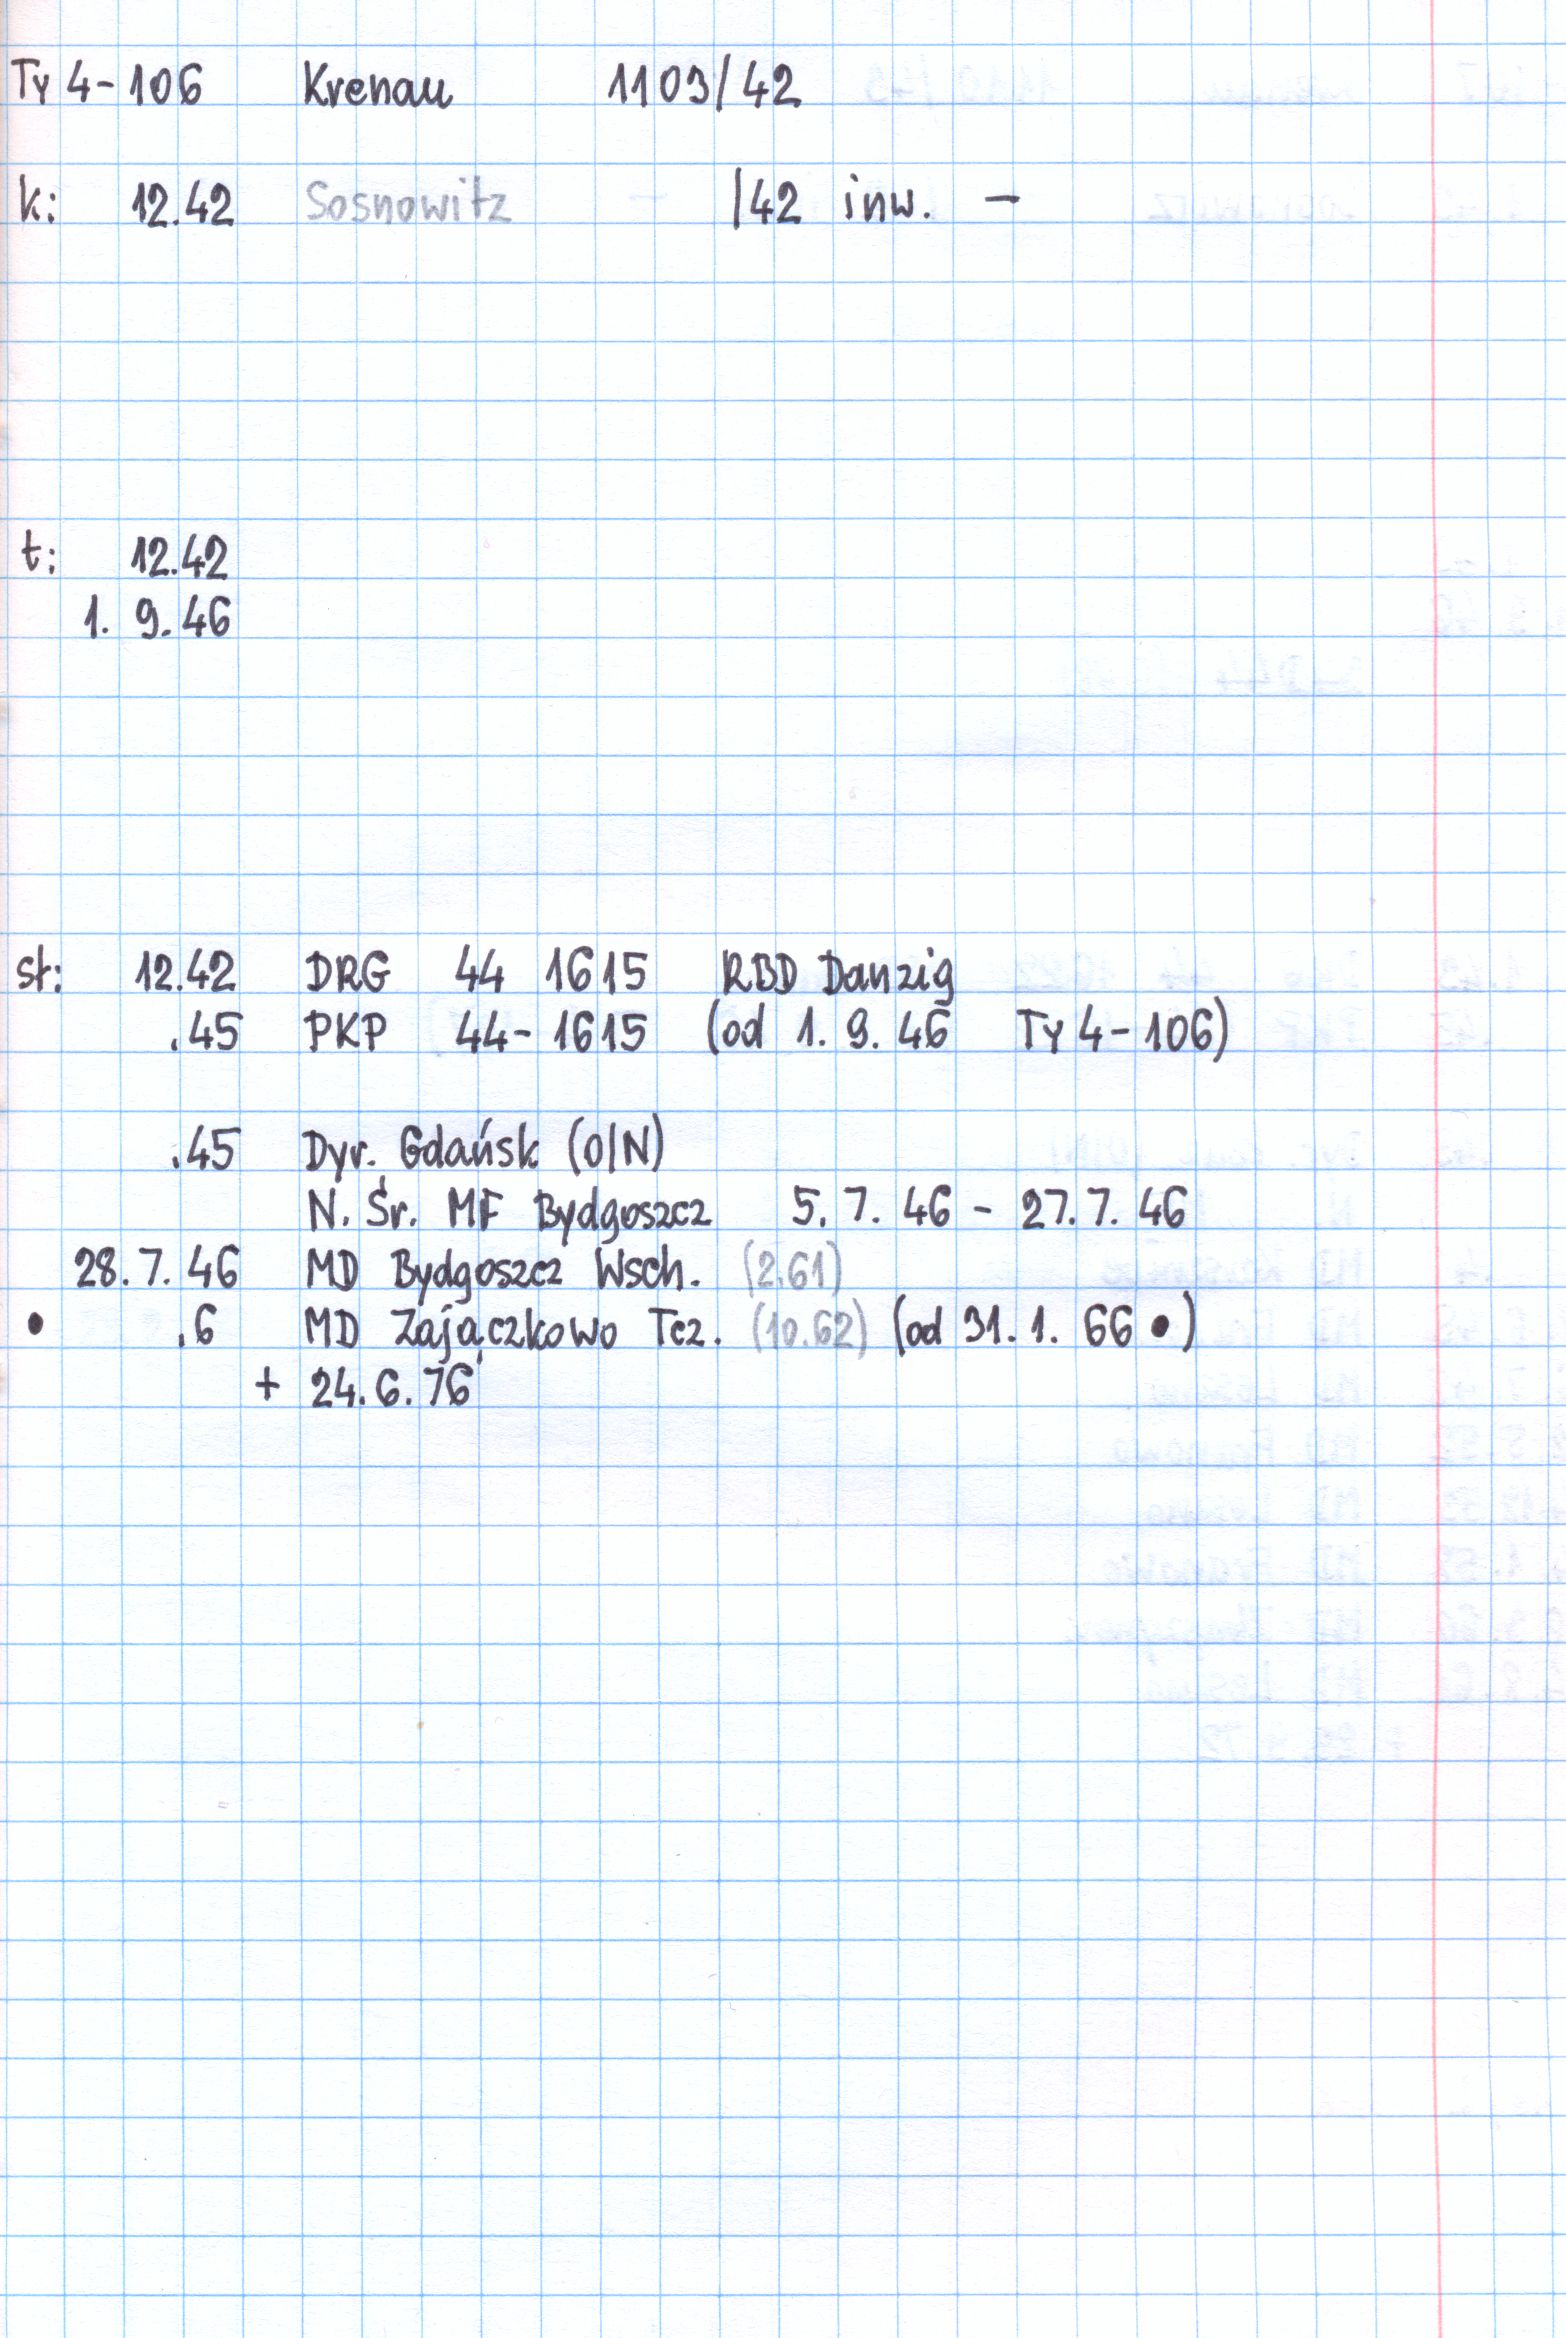 Ty 4-106 Krenau 1103/42
k: 12.42 Sosnowitz - /42 inw. -
t: 12.42
1. 9. 46
st: 12.42 DRG 44 1615 RBD Danzig
.45 PKP 44-1615 (od 1. 9. 46 Ty 4-106)
.45 Dyr. Gdańsk (O/N)
N. Śr. MF Bydgoszcz 5. 7. 46 - 27. 7. 46
28. 7. 46 MD Bydgoszcz Wsch. (2.61)
• .6 MD Zajączkowo Tcz. (10.62) (od 31. 1. 66 •)
+ 24. 6. 76